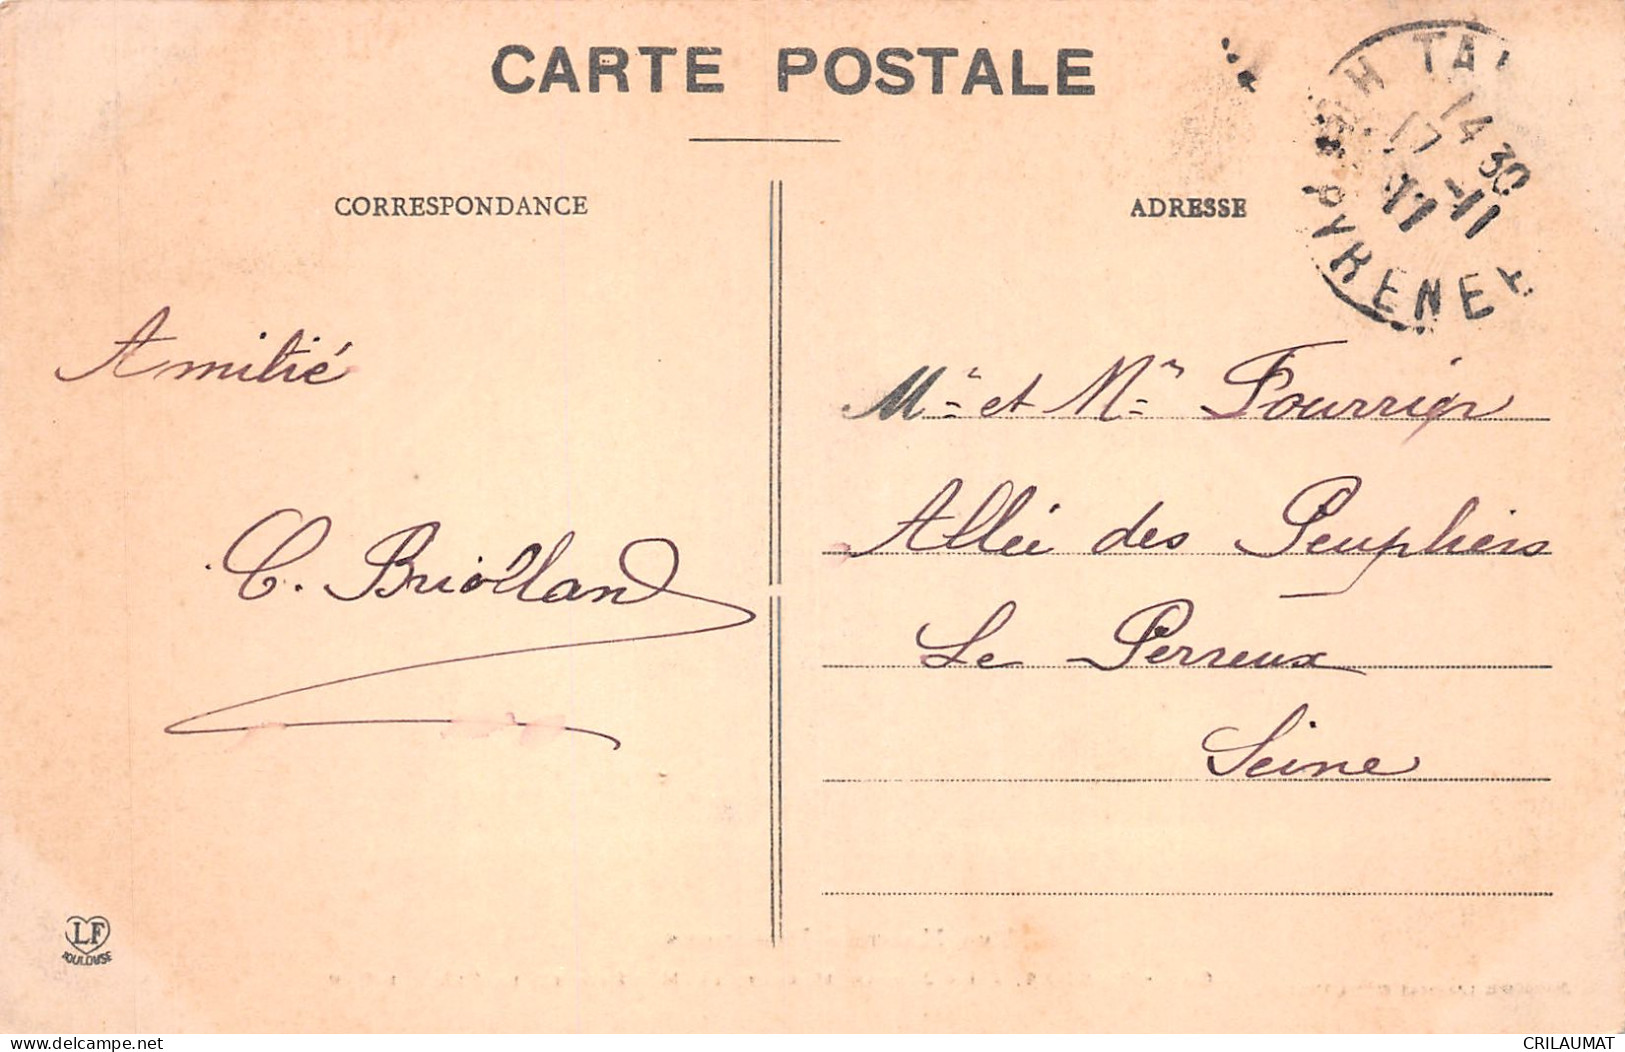 CARTE POSTALE
CORRESPONDANCE
ADRESSE
14 30
17 -11
PYRENEE
Amitié
C. Briolland
Mr et Mme Fourrier
Allée des Peupliers
Le Perreux
Seine
LF
TOULOUSE
delcampe.net
CRILAUMAT